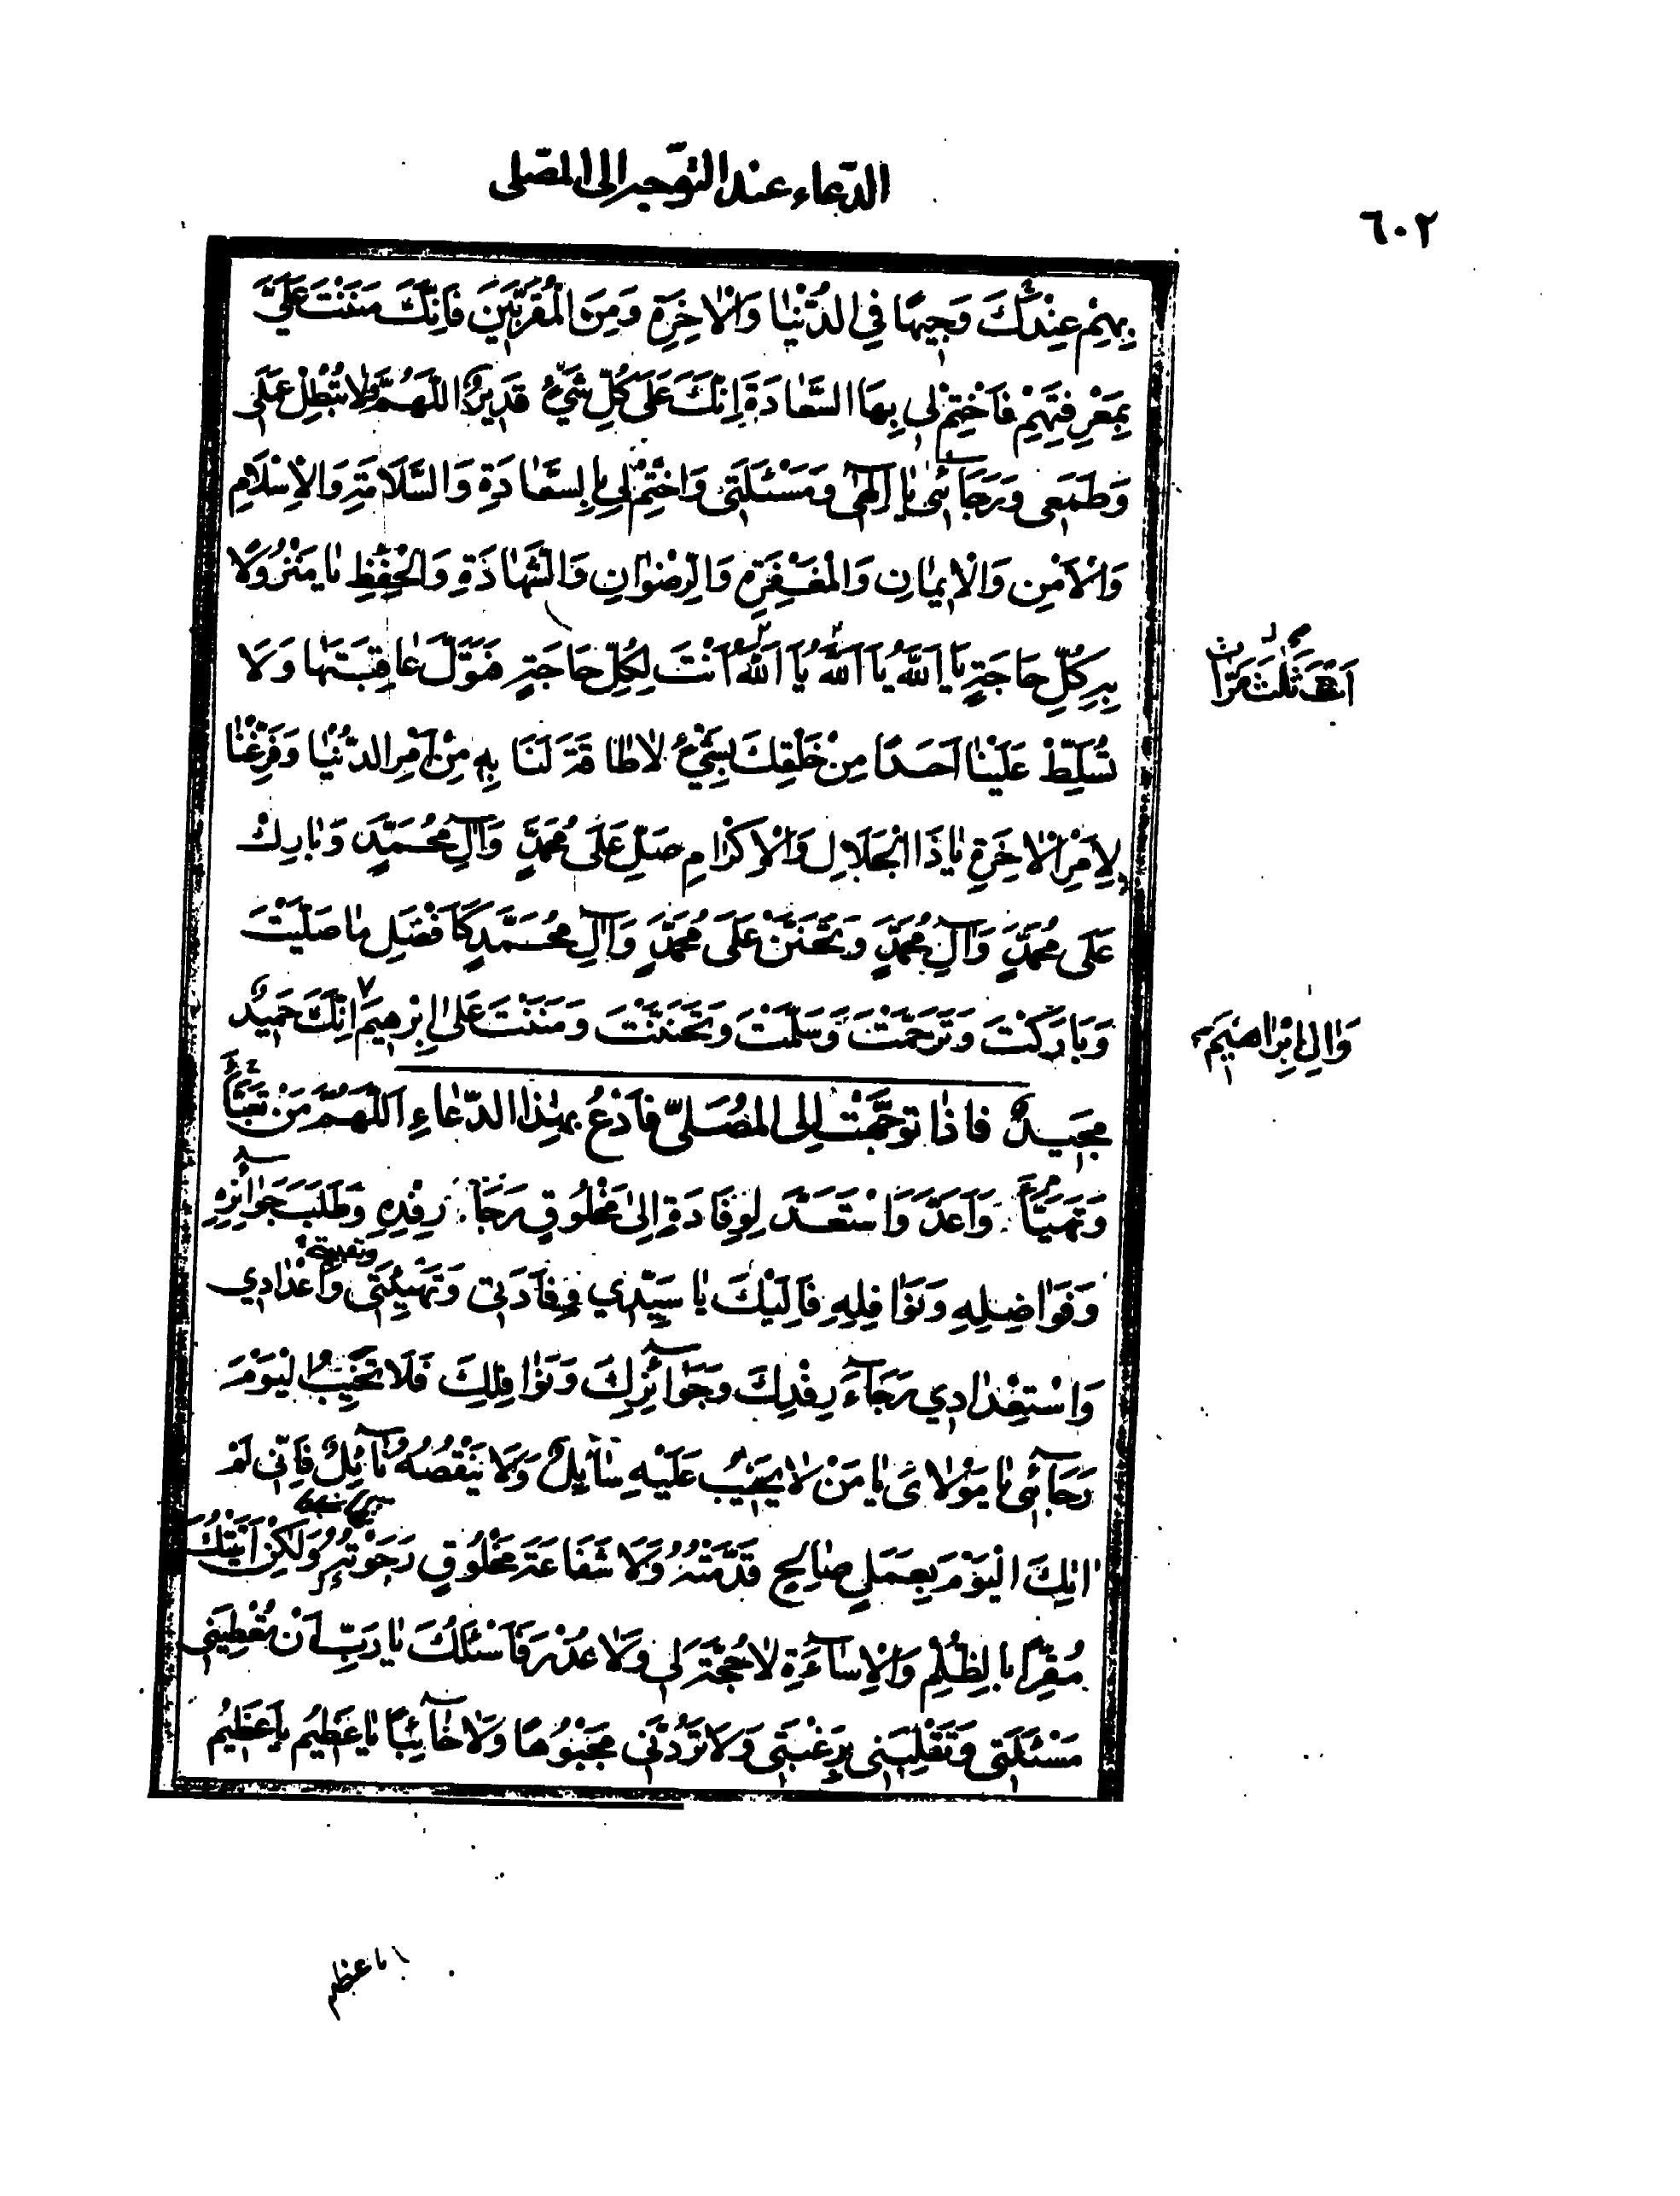 الدّعاء عند التّوجّه الى المصّلى
٦٠٢
بِهِمْ عِنْدَكَ وَجِيهًا فِي الدُّنْيٰا وَالْاٰخِرَةِ وَمِنَ الْمُقَرَّبِينَ فَاِنَّكَ مَنَنْتَ عَلَيَّ
بِمَعْرِفَتِهِمْ فَاخْتِمْ لِي بِهَا السَّعٰادَةَ اِنَّكَ عَلٰى كُلِّ شَيْءٍ قَدِيرٌ اَللّٰهُمَّ وَلٰا تُبْطِلْ عَمَلَي
وَطَمَعِي وَرَجٰائِي يٰا اِلٰهِي وَمَسْئَلَتِي وَاخْتِمْ لِي بِالسَّعٰادَةِ وَالسَّلٰامَةِ وَالْاِسْلٰامِ
وَالْاَمْنِ وَالْاِيمٰانِ وَالْمَغْفِرَةِ وَالرِّضْوٰانِ وَالشَّهٰادَةِ وَالْحِفْظِ يٰا مَنْزُولًا
بِهِ كُلِّ حٰاجَةٍ يٰا اَللّٰهُ يٰا اَللّٰهُ يٰا اَللّٰهُ اَنْتَ لِكُلِّ حٰاجَةٍ فَتَوَلَّ عٰاقِبَتَهٰا وَلَا
اللّٰه ثَلٰثَ مَرّات
تُسَلِّطْ عَلَيْنٰا اَحَدًا مِنْ خَلْقِكَ بِشَيْءٍ لٰا طٰاقَةَ لَنَا بِهِ مِنْ اَمْرِ الدُّنْيٰا وَفَرِّغْنٰا
لِاَمْرِ الْاٰخِرَةِ يٰا ذَا الْجَلٰالِ وَالْاِكْرٰامِ صَلِّ عَلٰى مُحَمَّدٍ وَاٰلِ مُحَمَّدٍ وَبٰارِكْ
عَلٰى مُحَمَّدٍ وَاٰلِ مُحَمَّدٍ وَتَحَنَّنْ عَلٰى مُحَمَّدٍ وَاٰلِ مُحَمَّدٍ كَاَفْضَلِ مٰا صَلَّيْتَ
وَبٰارَكْتَ وَتَرَحَّمْتَ وَسَلَّمْتَ وَتَحَنَّنْتَ وَمَنَنْتَ عَلٰى اِبْرٰهِيمَ اِنَّكَ حَمِيدٌ
وَاٰلِ اِبْرٰاهِيمَ
مَجِيدٌ فَاذٰا تَوَجَّهْتَ اِلَى الْمُصَلّٰى فَادْعُ بِهٰذَا الدُّعٰاءِ اَللّٰهُمَّ مَنْ تَعَبَّأَ
وَتَهَيَّأَ وَاَعَدَّ وَاسْتَعَدَّ لِوِفٰادَةٍ اِلٰى مَخْلُوقٍ رَجٰاءَ رِفْدِهِ وَطَلَبَ جَوٰائِزِهِ
وَفَوٰاضِلِهِ وَنَوٰافِلِهِ فَاِلَيْكَ يٰا سَيِّدِي وِفٰادَتِي وَتَهْيِئَتِي وَاِعْدٰادِي
وَاسْتِعْدٰادِي رَجٰاءَ رِفْدِكَ وَجَوٰائِزِكَ وَنَوٰافِلِكَ فَلٰا تُخَيِّبِ الْيَوْمَ
رَجٰائِي يٰا مَوْلٰايَ يٰا مَنْ لٰا يَخِيبُ عَلَيْهِ سٰائِلٌ وَلٰا يَنْقُصُهُ نٰائِلٌ فَاِنِّي لَمْ
اٰتِكَ الْيَوْمَ بِعَمَلٍ صٰالِحٍ قَدَّمْتُهُ وَلَا شَفٰاعَةَ مَخْلُوقٍ رَجَوْتُهُ وَلٰكِنْ اَتَيْتُكَ
مُقِرًّا بِالظُّلْمِ وَالْاِسٰاءَةِ لٰا حُجَّةَ لِي وَلٰا عُذْرَ فَاَسْئَلُكَ يٰا رَبِّ اَنْ تُعْطِيَنِي
مَسْئَلَتِي وَتَقْلِبَنِي بِرَغْبَتِي وَلَا تَرُدَّنِي مَجْبُوهًا وَلَا خٰائِبًا يٰا عَظِيمُ يٰا عَظِيمُ
يا عظيم